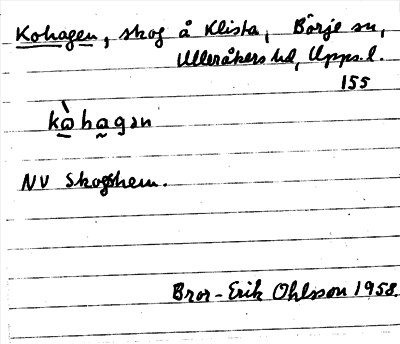 Kohagen, skog å Klista, Börje sn,
Ulleråkers hd, Upps. l.
155
kò̠ha̰gən
NV Skogshem.
Bror-Erik Ohlsson 1958.